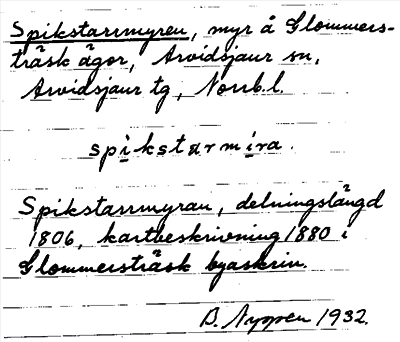 Spikstarrmyren, myr å Glommers-
träsk ägor, Arvidsjaur sn,
Arvidsjaur tg, Norrb.l.
spikstarmira.
Spikstarrmyran, delningslängd
1806, kartbeskrivning 1880 i
Glommersträsk byaskrin.
B. Nyppen 1932.